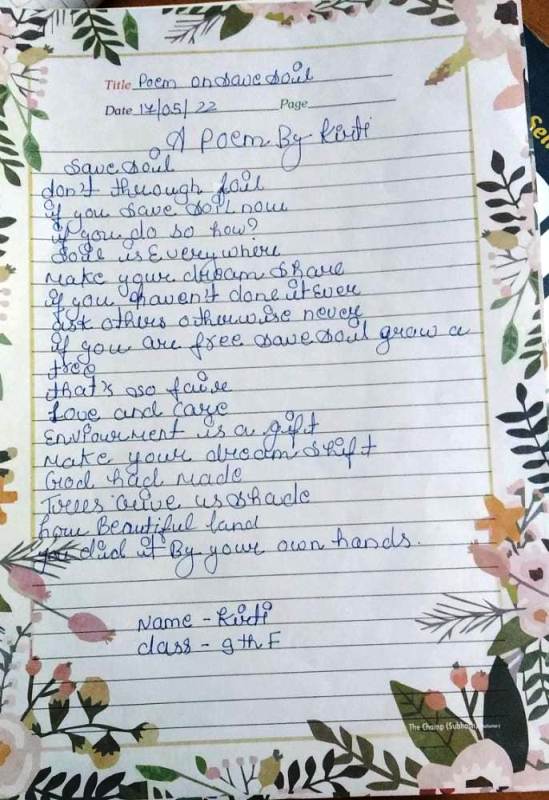 Title Poem on save soil
Date 17/05/22 Page
A Poem By Kirti
Save soil
don't through foil
if you save soil now
if you do so how?
Soil is Everywhere
Make your dream share
if you haven't done it Ever
ask others otherwise never
if you are free save soil grow a
tree
that's so faire
Love and care
Envpourment is a gift
Make your dream shift
God had made
Trees give us shade
how Beautiful land
you did it By your own hands.
Name - Kirti
class - 9th F
The Champ (Subhash
Sen